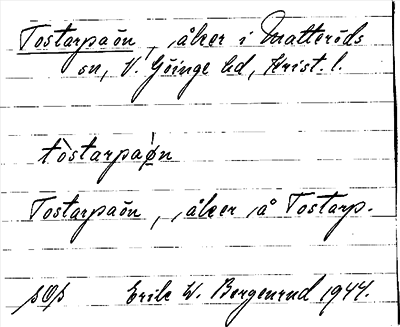 Tostarpaön, åker i Matteröds
sn, V. Göinge hd, Krist. l.
tòstarpaøn
Tostarpaön, åker å Tostarp.
Erik W. Bergenrud 1944.